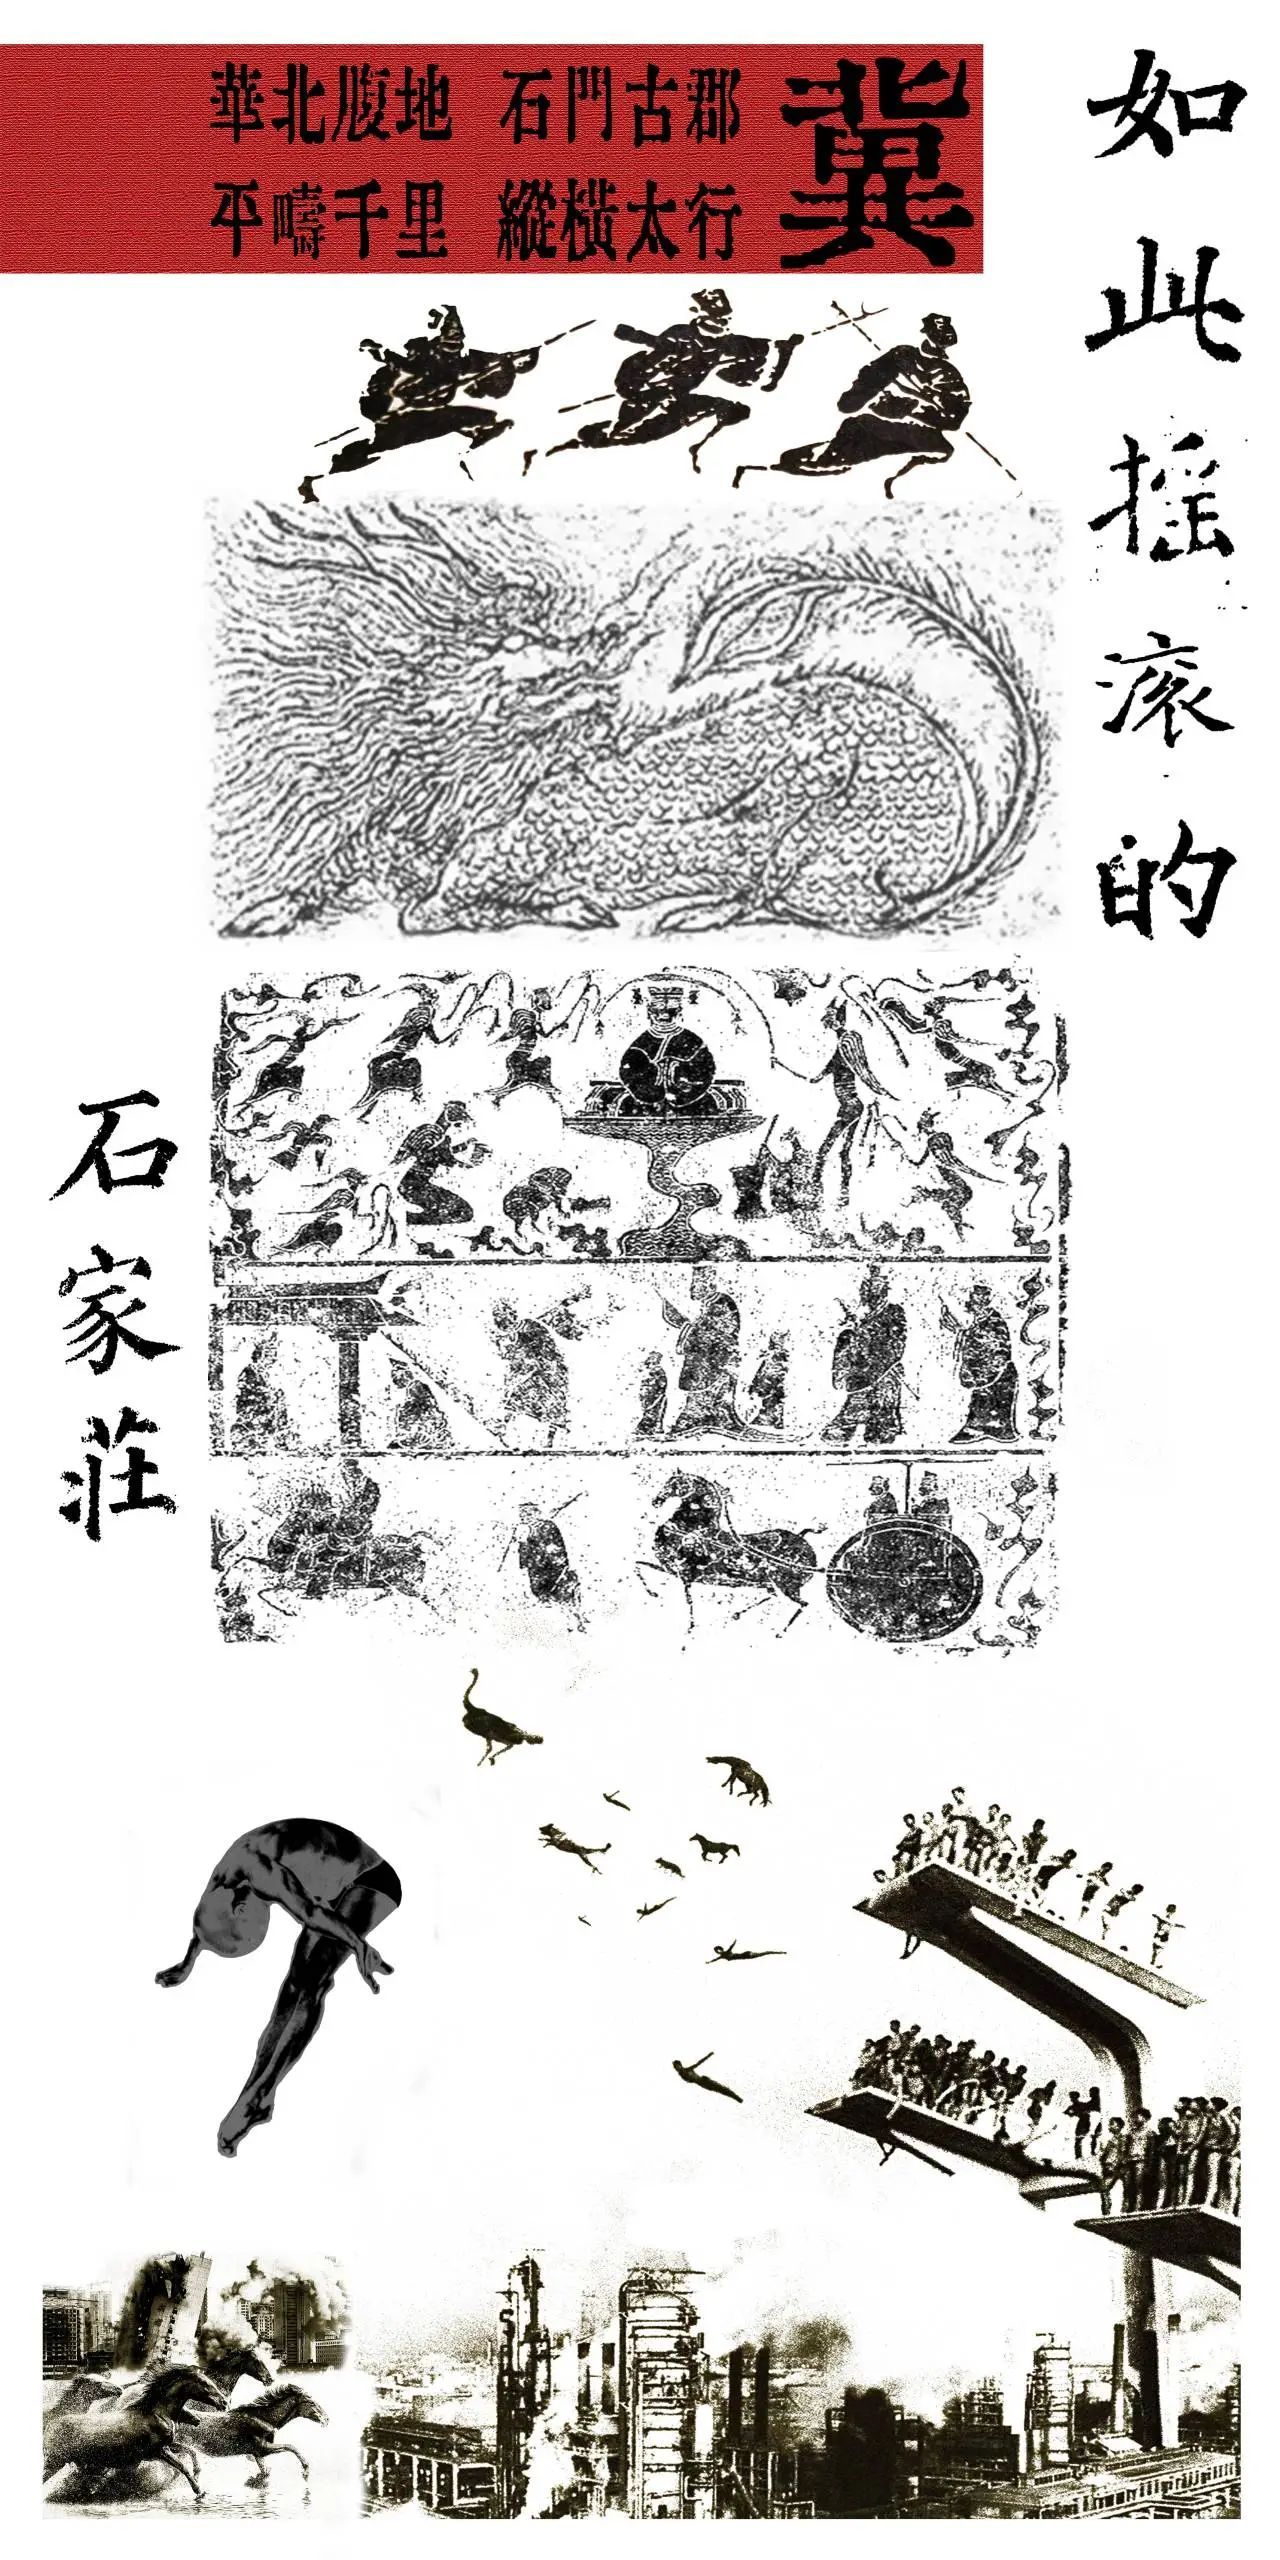 冀
華北腹地 石門古郡
平疇千里 縱橫太行
如此摇滚的
石家莊